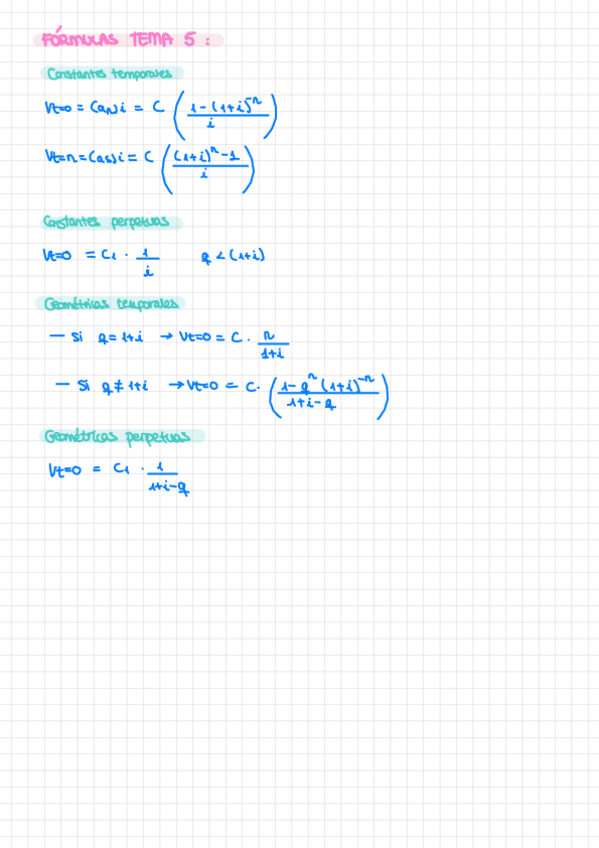 FÓRMULAS TEMA 5 :
Constantes temporales
Vt=0 = C an i = C ( (1 - (1+i)^-n) / i )
Vt=n = C as i = C ( ((1+i)^n - 1) / i )
Constantes perpetuas
Vt=0 = C1 · 1/i    q < (1+i)
Geométricas temporales
— Si q = 1+i → Vt=0 = C · n/(1+i)
— Si q ≠ 1+i → Vt=0 = C · ( (1 - q^n (1+i)^-n) / (1+i-q) )
Geométricas perpetuas
Vt=0 = C1 · 1/(1+i-q)